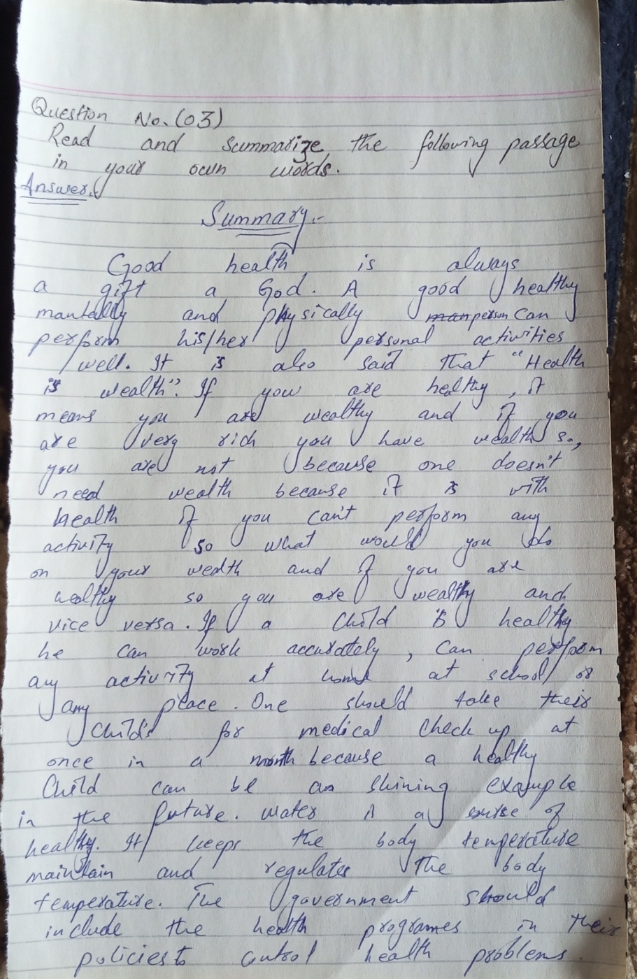 Question No. (03)
Read and summarize the following passage
in your own words.
Answer.
Summary:-
Good health is always
a gift a God. A good healthy
mantally and physically person can
perform his/her personal activities
well. It is also said that "Health
is wealth". If you are helthy, it
means you are wealthy and if you
are very rich you have wealth so,
you are not because one doesn't
need wealth because it is with
health if you can't perform any
activity so what would you do
on your wealth and if you are
healthy so you are wealthy and
vice versa. If a child is healthy
he can work accurately, can perform
any activity at home at school or
any place. One should take their
child's for medical check up at
once in a month because a healthy
child can be an shining example
in the future. water is a of
healthy. It keeps the body temperature
maintain and regulates the body
temperature. The government should
include the health programes in their
policies to control health problems.